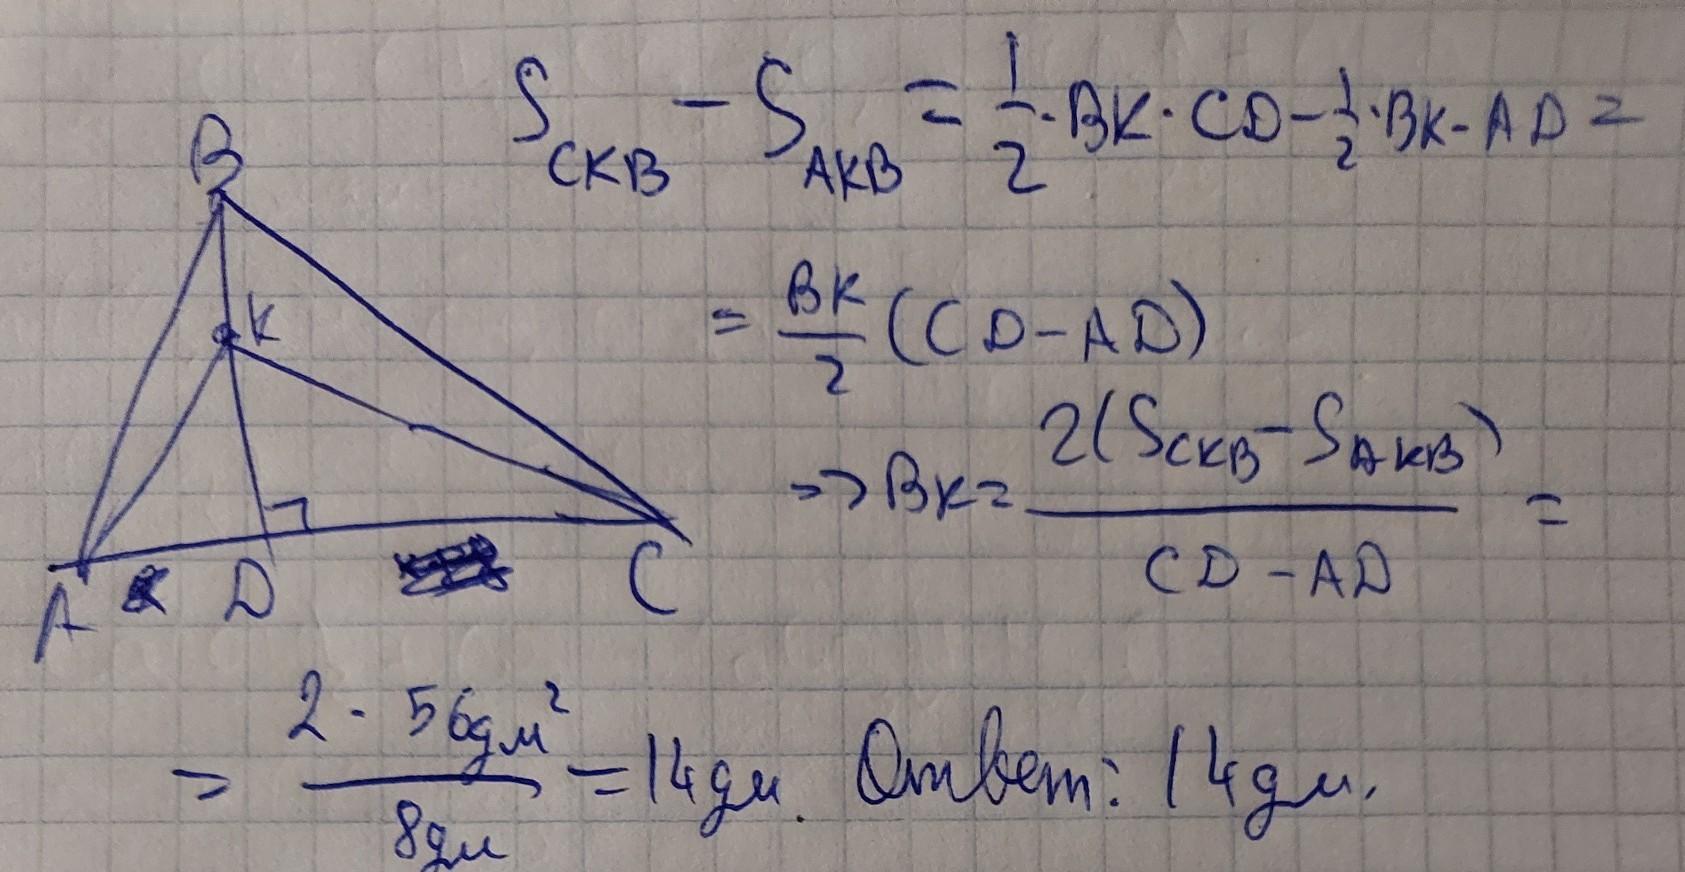 S_CKB - S_AKB = 1/2 · BK · CD - 1/2 · BK · AD =
B
K
= BK/2 (CD - AD)
=> BK = 2(S_CKB - S_AKB)/(CD - AD) =
A D C
= 2 · 56дм²/8дм = 14дм. Ответ: 14дм.